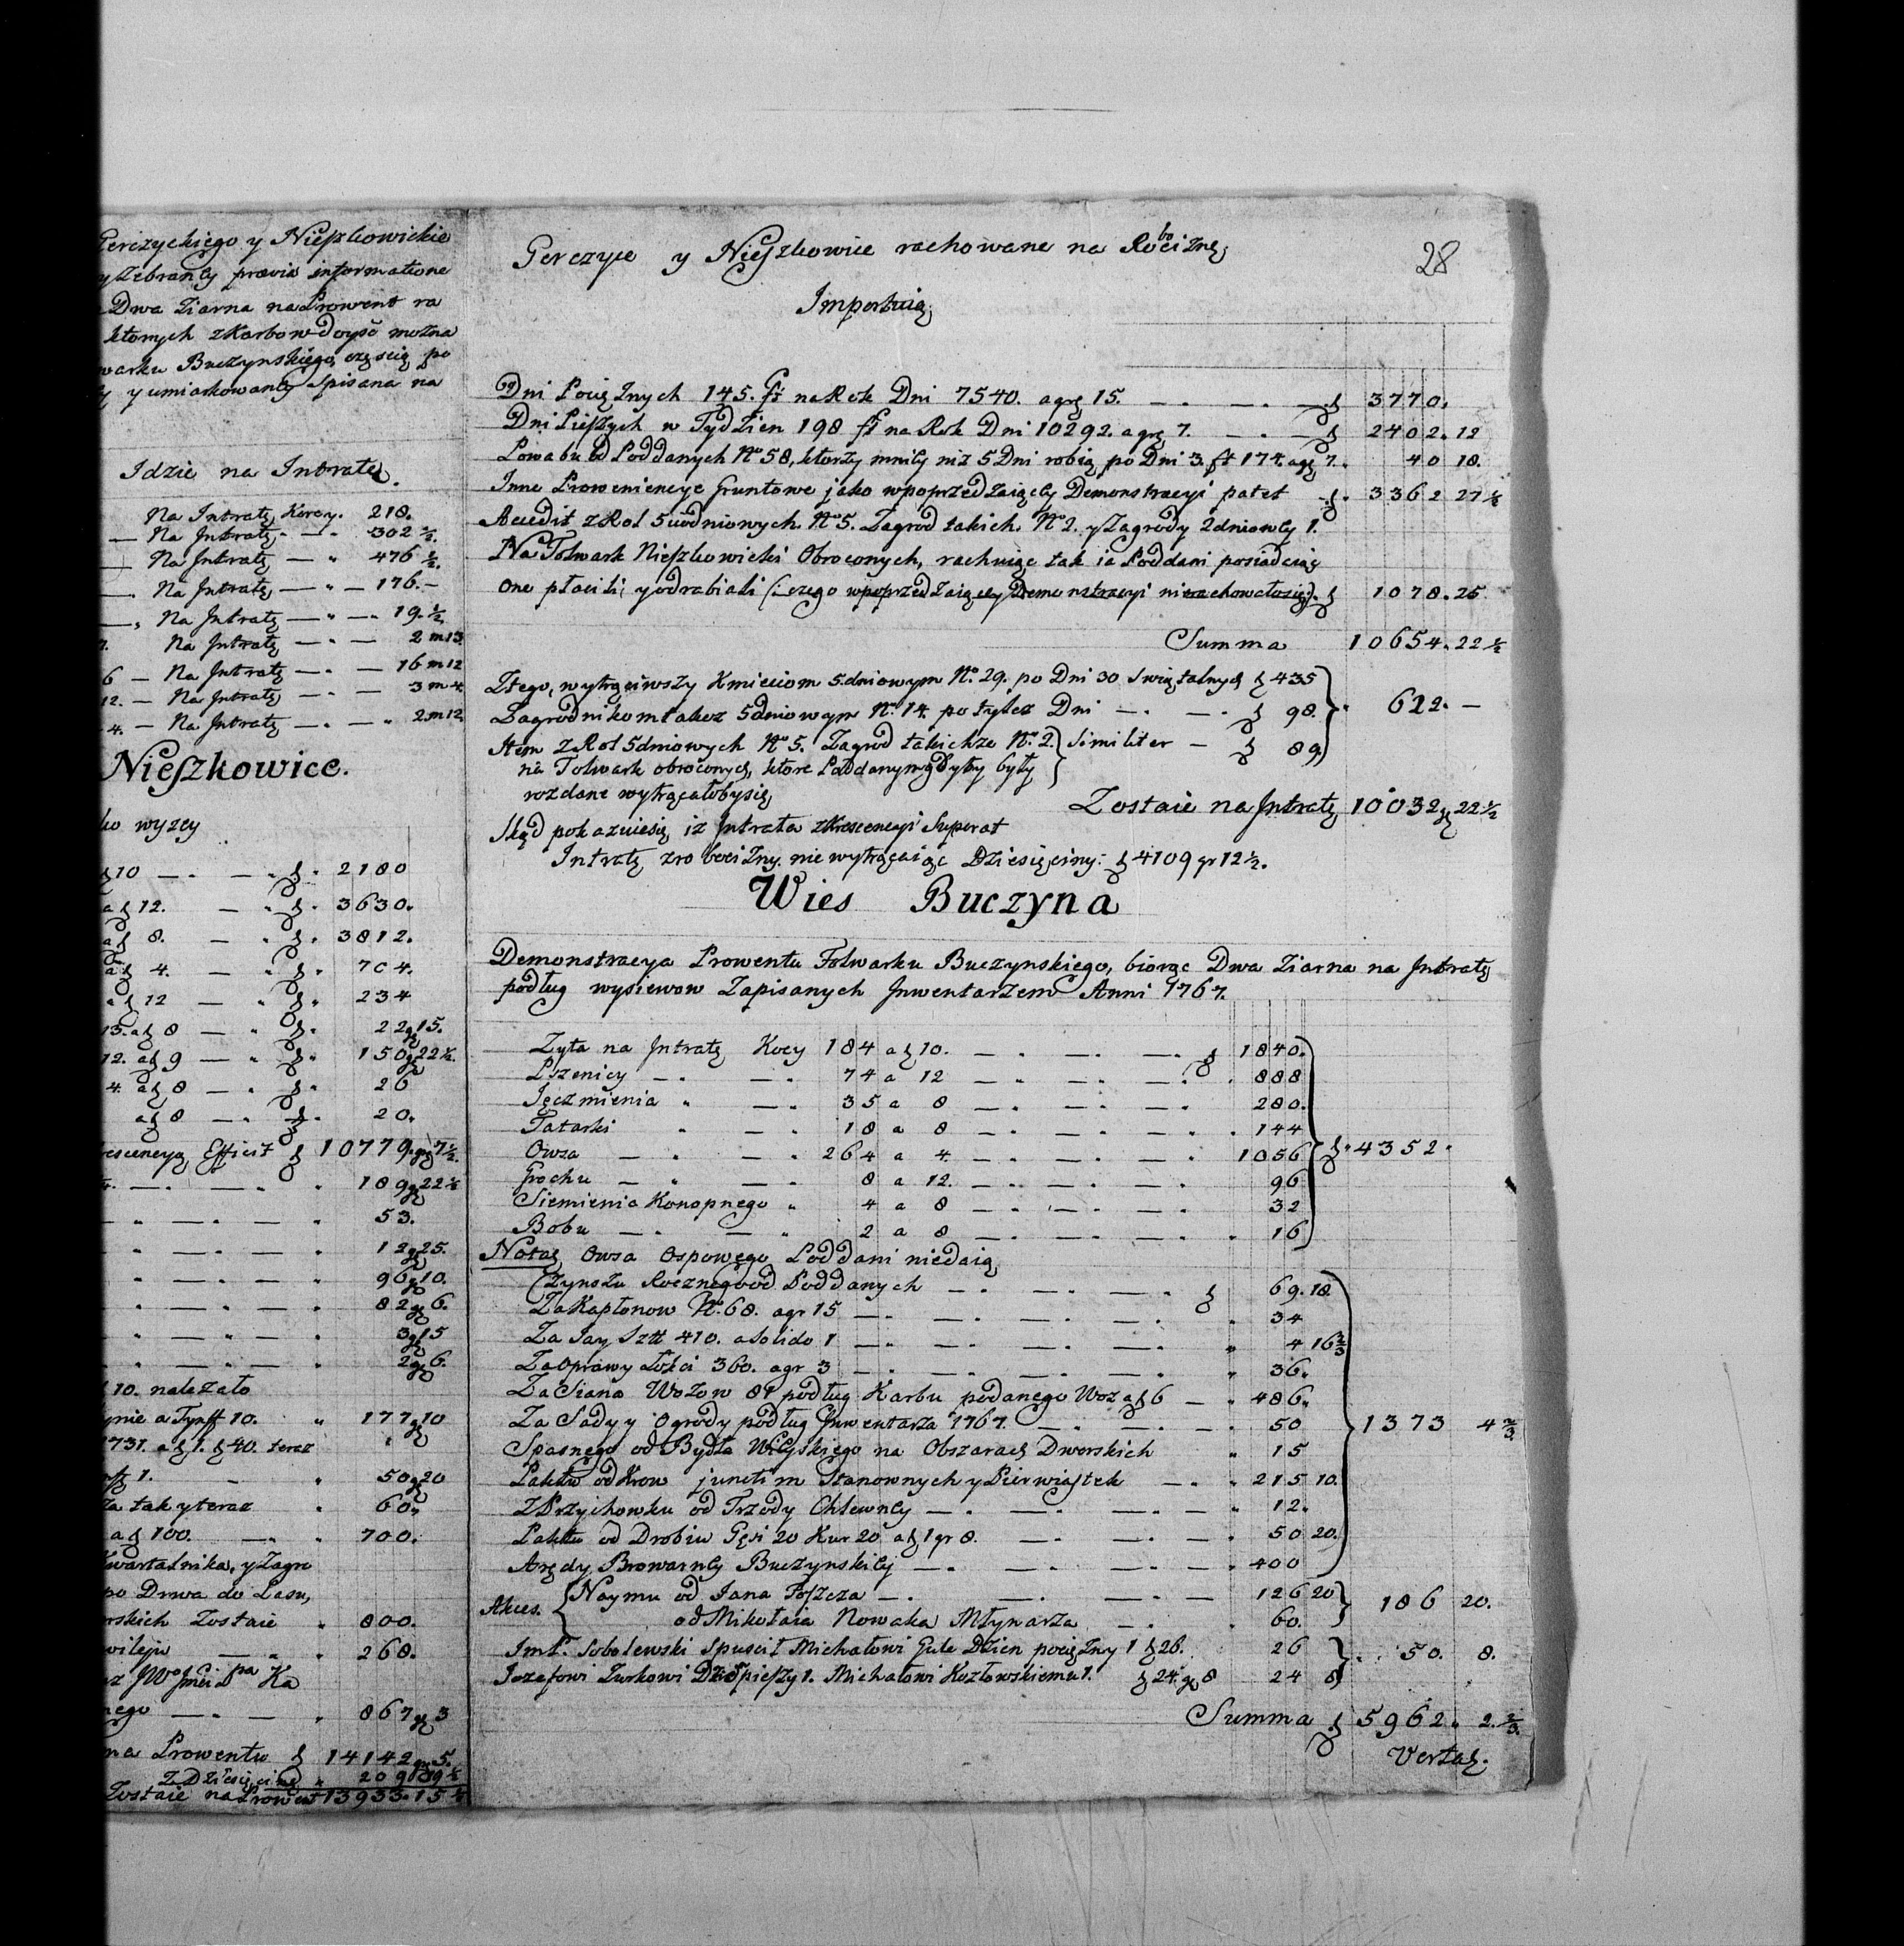 Gerczyckiego y Nieszkowickie
y Zebraney praevia informatione
Dwa Ziarna na Prowent ra
ktorych z Karbow doysc mozna
warku Buczynskiego, częscią po
y umiarkowaney Spisana na
Idzie na Intratę.
Na Intratę Korcy. 218.
— Na Intratę — 302 ½.
— Na Intratę — 476 ½.
— Na Intratę — 176.—
— Na Intratę — 19.½.
Na Intratę — 2 m 13
6 — Na Intratę — 16 m 12
12. — Na Intratę — 3 m 4.
4. — Na Intratę — 2 m 12
Nieszkowice.
ko wyzey
10 — 2180
a 12. — 3630.
a 8. — 3812.
a 4. — 704.
a 12 — 234
13. a 8 — 22 g 15.
12. a 9 — 150 g 22 ½.
4. a 8 — 26
a 8 — 20.
escencyą Efficit 10779. gr 7½.
— 189 g 22 ½
— 53.
— 12 g 25.
— 96 g 10.
— 82 g 6.
— 3 g 15
— 2 g 6.
10. nalezało
ynie a Tynff 10. 177 g 10
1731. a 1. 40. teraz
1. 50 g 20
za tak y teraz 60.
a 100. — 700.
kwartalnika, y Zagro
po Drwa do Lasu,
rskich Zostaie 800.
wileju — 268.
nego — 867 g 3
ma Prowentu 14142 gr 5.
Z Dziesięciną 209
Zostaie na Prowent 13933. 15 ½
Gerczyce y Nieszkowice rachowane na Robociznę
28
Importuią
Dni Pociąznych 145. ft na Rok Dni 7540. a gr 15. — 3770.
Dni Pieszych w Tydzien 198 ft na Rok Dni 10292. a gr 7. — 2402. 12
Powabu od Poddanych No 58, ktorzy mniey niz 5 Dni robią po Dni 3. ft 174. a gr 7. 40 18.
Inne Proweniencye Gruntowe jako w poprzedzaiącey Demonstracyi patet 3362 27 ½
Accedit z Rol 5ciodniowych No 5. Zagrod takich No 2. y Zagrody 2dniowey 1.
Na Folwark Nieszkowicki Obroconych, rachuiąc tak ia Poddani posiadaiąc
one płacili y odrabiali (: czego w poprzedzaiącey Demonstracyi nierachowało się). 1078. 25
Summa 10654. 22 ½
Z tego, wytrąciwszy Kmieciom 5.dniowym No 29. po Dni 30 Swiątalnych 435
Zagrodnikom takoz 5dniowym No 14. po tylez Dni — 98. 622. —
Item z Rol 5dniowych No 5. Zagrod takichze No 2. Similiter — 89
na Folwark obroconych, ktore Poddanym gdyby były
rozdane wytrącałoby się
Zostaie na Intratę 10032 g 22 ½
Skąd pokazuie się, iz Intrata z Krescencyi Superat
Intratę z robocizny, nie wytrącaiąc Dziesięciny: 4109 gr 12 ½.
Wies Buczyna
Demonstracya Prowentu Folwarku Buczynskiego, biorąc Dwa Ziarna na Intratę
podług wysiewow Zapisanych Inwentarzem Anni 1767.
Zyta na Intratę Korcy 184 a 10. — 1840.
Pszenicy — 74 a 12 — 888
Jęczmienia 35 a 8 — 280.
Tatarki 18 a 8 — 144
Owsa — 264 a 4. — 1056 4352.
Grochu — 8 a 12. — 96
Siemienia Konopnego 4 a 8 — 32
Bobu — 2 a 8 — 16
Nota Owsa Ospowego Poddani niedaią
Czynszu Rocznego od Poddanych — 69. 18.
Za Kapłonow No 68. a gr 15 — 34
Za Jay Sztt 410. a Solido 1 — 4 16 ⅔
Za Oprawy Łokci 360. a gr 3 — 36.
Za Siana Wozow 81 podług Karbu podanego Woz a 6 — 486.
Za Sady y Ogrody podług Inwentarza 1767. — 50 1373 4 ⅔
Spasnego od Bydła Wieyskiego na Obszarach Dworskich 15
Paktu od Krow junctim Stanownych y Pierwiastek — 215 10.
Z Przychowku od Trzody Chlewney — 12.
Paktu od Drobiu Gęsi 20 Kur 20 a 1 gr 8. — 50 20.
Arędy Browarney Buczynskiey — 400
Akces. Naymu od Jana Foszcza — 126 20 186 20.
od Mikołaia Nowaka Młynarza — 60.
Imć. Sobolewski Spuscił Michałowi Gule Dzien pociązny 1 26. 26 50. 8.
Jozefowi Turkowi Dzień pieszy 1. Michałowi Kozłowskiemu 1. 24. gr 8 24 8
Summa 5962. 2. ⅔.
Verta.